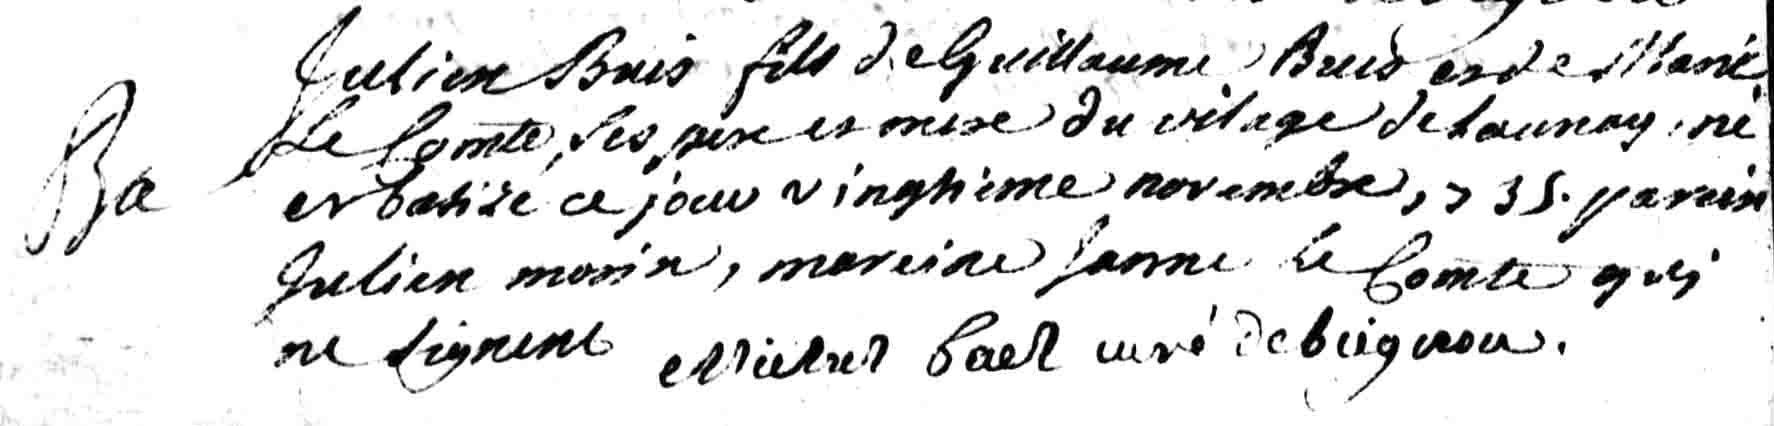 Julien Buis fils de Guillaume Buis et de Marie
Le Comte, ses pere et mere du vilage de launay, né
Ba et batisé ce jour vingtieme novembre, 735. parein
Julien morin, mareine Janne le Comte qui
ne signent Michel bael curé de